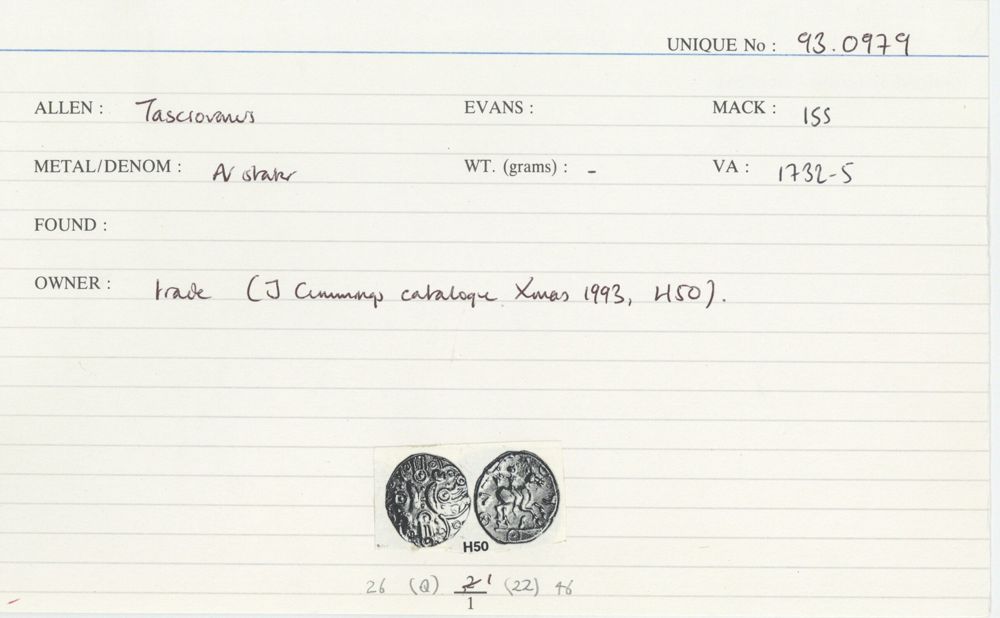 UNIQUE No : 93.0979
ALLEN : Tasciovanus EVANS : MACK : 155
METAL/DENOM : AV stater WT. (grams) : - VA : 1732-5
FOUND :
OWNER : trade (J Cummings catalogue Xmas 1993, H50).
H50
26 (Q) 21 (22) 46
1